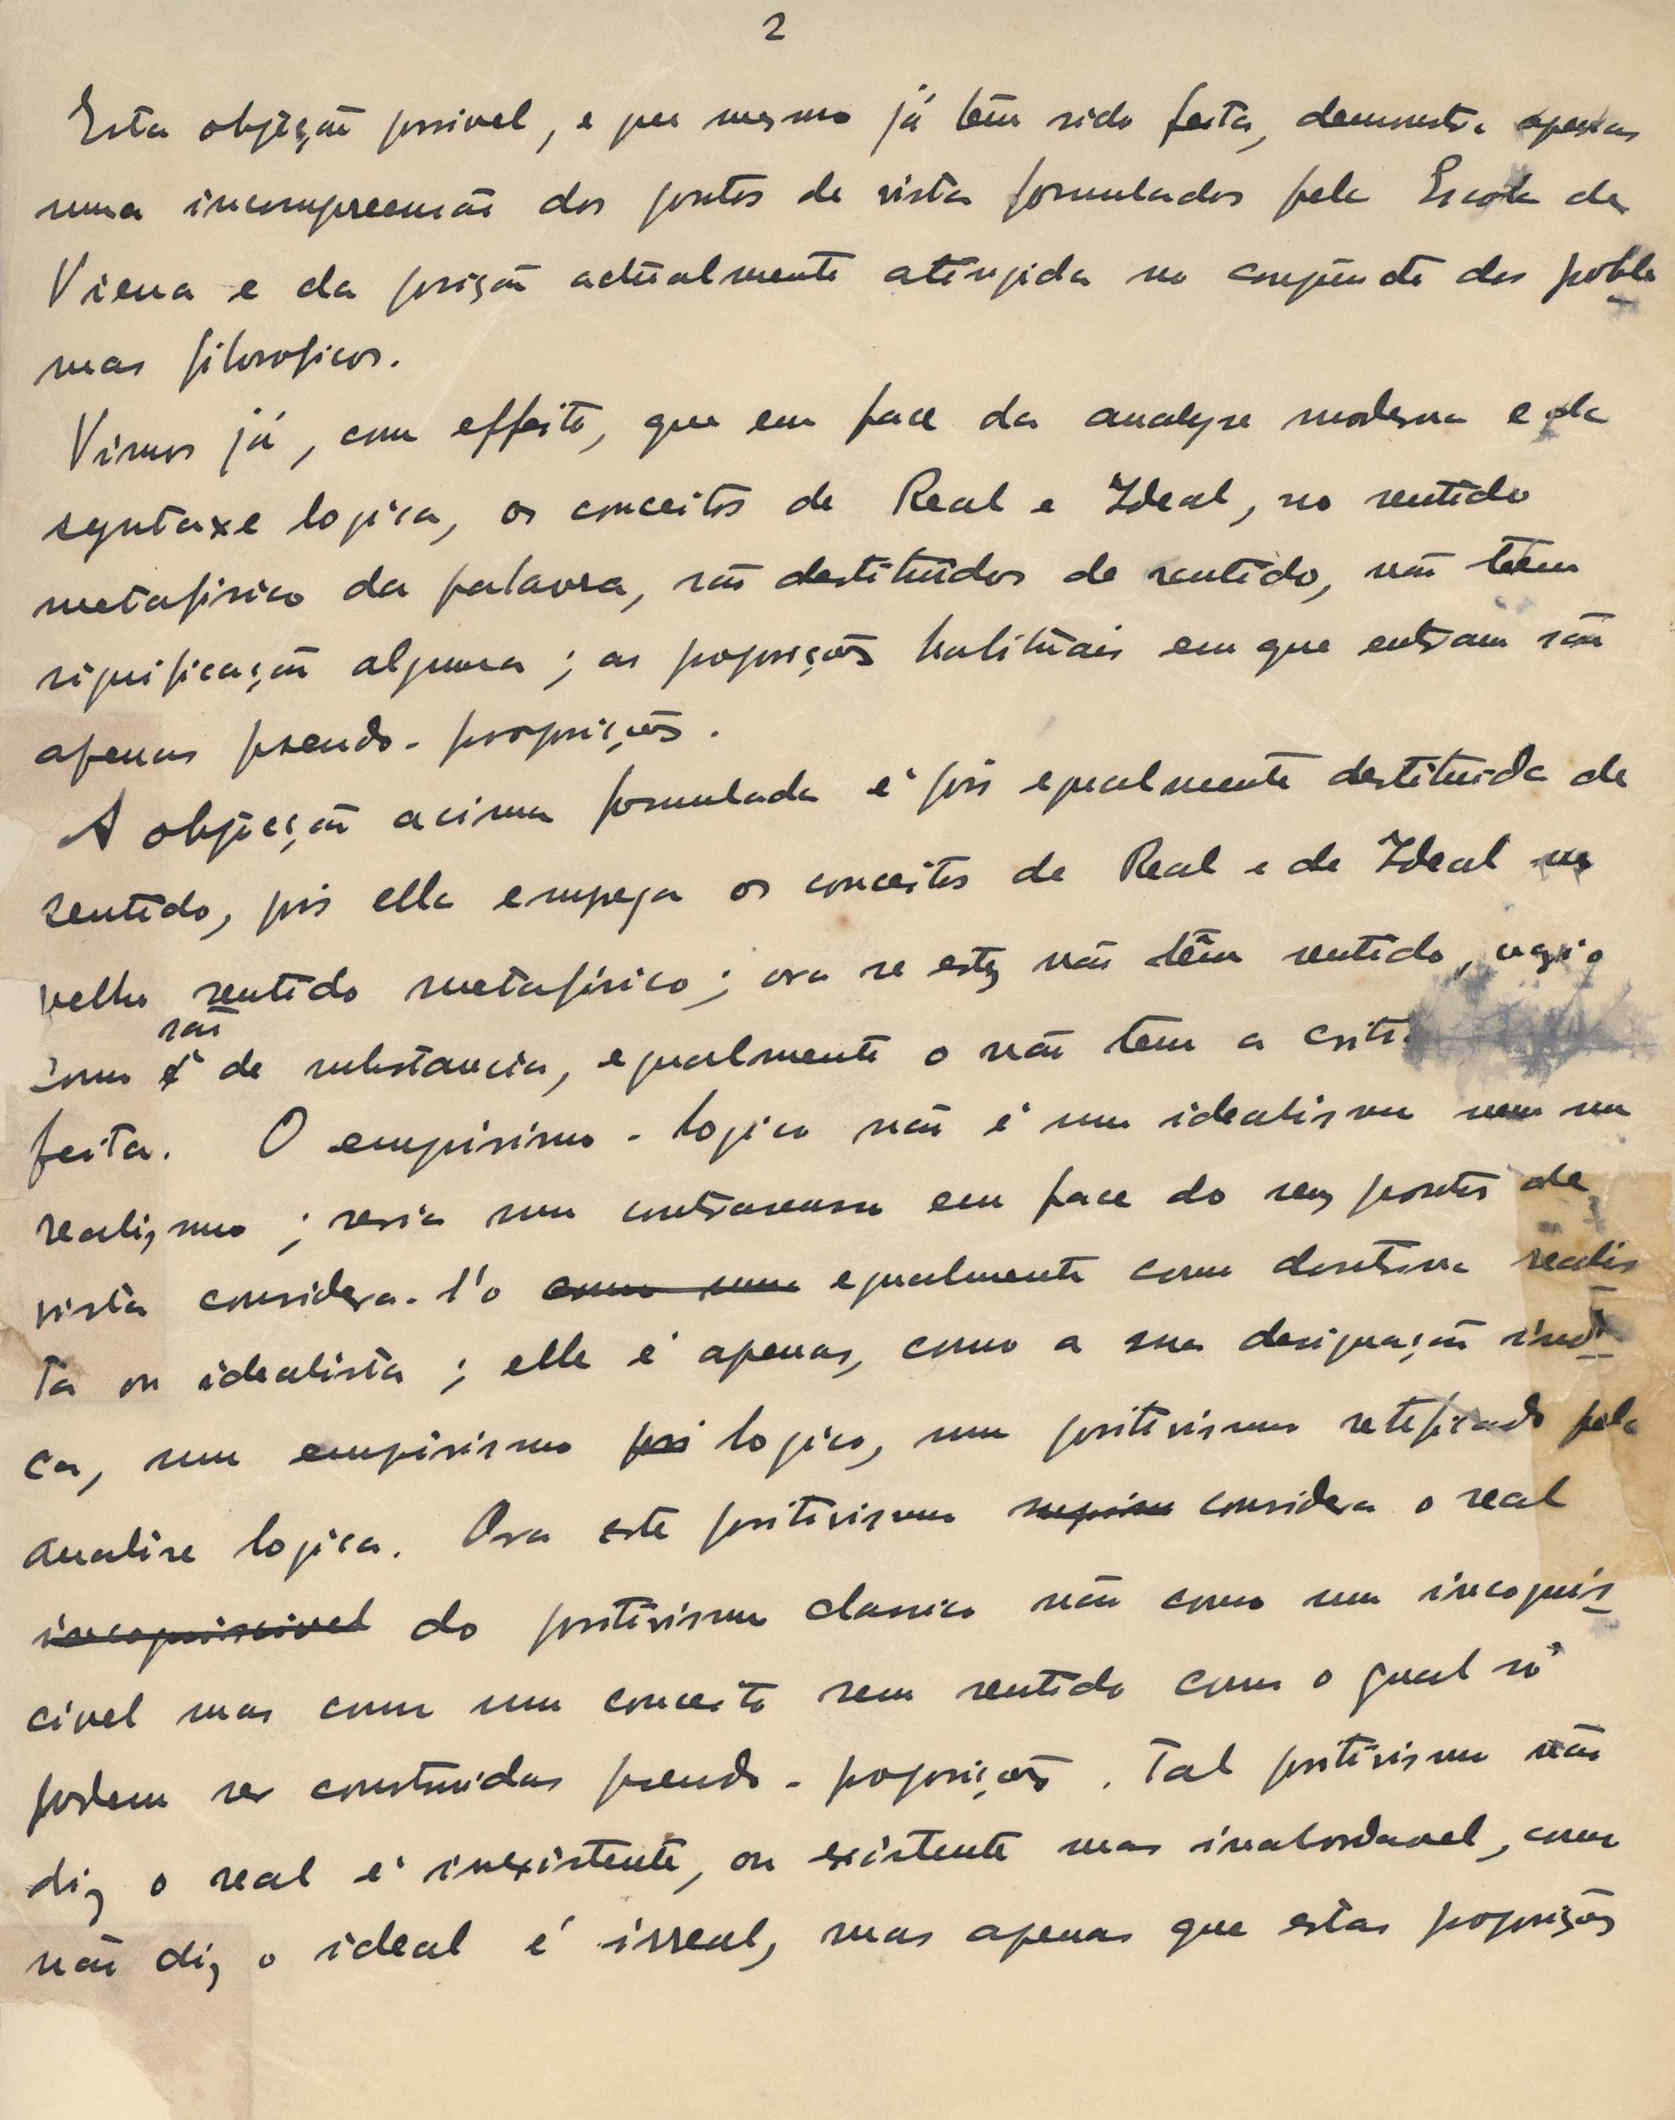 2
Esta objeção possivel, e que mesmo já têm sido feita, demonstra apenas
uma incompreensão dos pontos de vista formulados pela Escola de
Viena e da posição actualmente atingida no conjuncto dos proble
mas filosoficos.
Vimos já, com effeito, que em face da analyse moderna e da
syntaxe logica, os conceitos de Real e Ideal, no sentido
metafisico da palavra, são destituidos de sentido, não têem
significação alguma; as proposições habituais em que entram são
apenas pseudo-proposições.
A objecção acima formulada é pois egualmente destituida de
sentido, pois ella emprega os conceitos de Real e de Ideal no
velho sentido metafisico; ora se estes não têm sentido,
como são de substancia, egualmente o não tem a
feita. O empirismo-logico não é um idealismo nem um
realismo; seria um contrasenso em face do seu ponto de
vista considera-l'o como uma egualmente como doutrina realis
ta ou idealista; elle é apenas, como a sua designação indi-
ca, um empirismo logico, um positivismo retificado pela
analise logica. Ora este positivismo considera o real
incogniscivel do positivismo classico não como um incognis-
civel mas como um conceito sem sentido com o qual só
podem ser construidas pseudo-proposições. Tal positivismo não
diz o real é inexistente, ou existente mas inabordavel, como
não diz o ideal é irreal, mas apenas que estas proposições